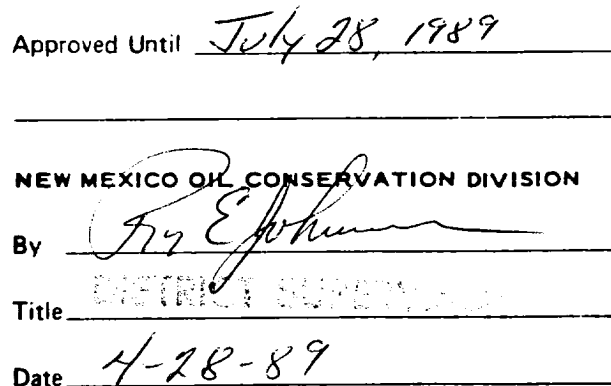 Approved Until July 28, 1989
NEW MEXICO OIL CONSERVATION DIVISION
By E Johnson
Title DISTRICT
Date 4-28-89